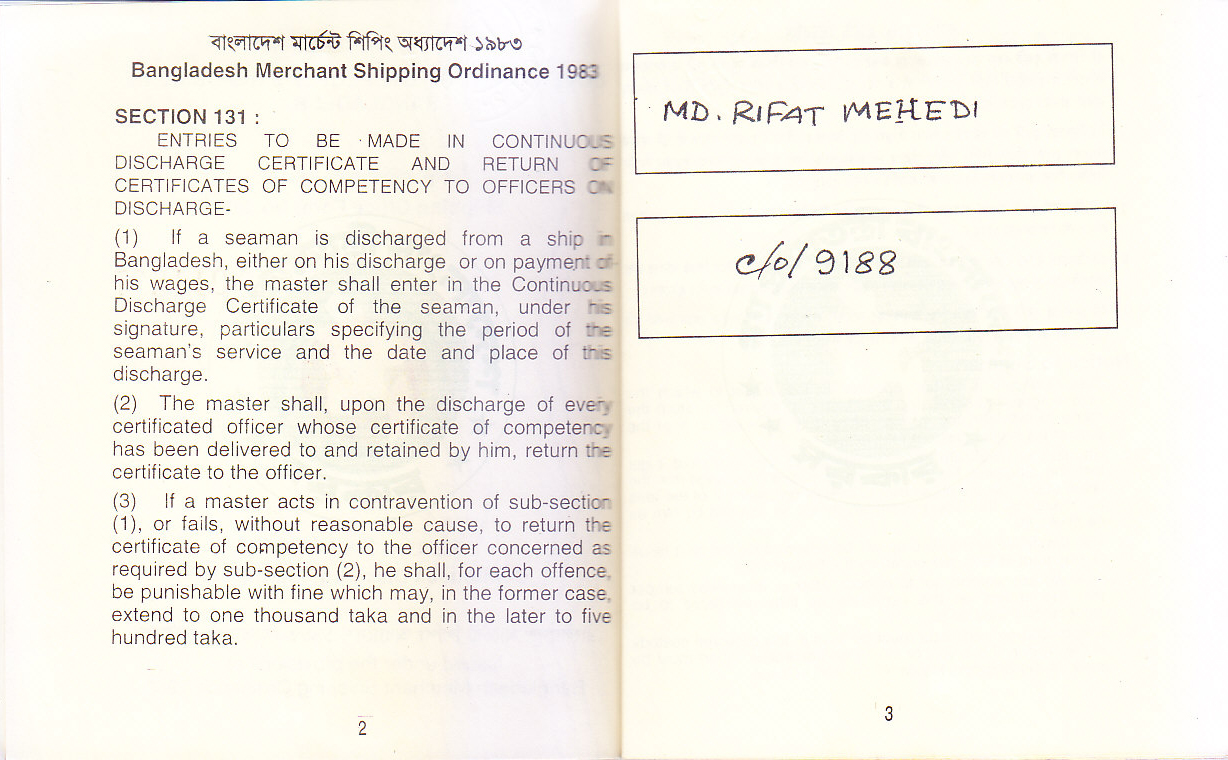 বাংলাদেশ মার্চেন্ট শিপিং অধ্যাদেশ ১৯৮৩
Bangladesh Merchant Shipping Ordinance 1983
SECTION 131 :
ENTRIES TO BE MADE IN CONTINUOUS
DISCHARGE CERTIFICATE AND RETURN OF
CERTIFICATES OF COMPETENCY TO OFFICERS ON
DISCHARGE-
(1) If a seaman is discharged from a ship in
Bangladesh, either on his discharge or on payment of
his wages, the master shall enter in the Continuous
Discharge Certificate of the seaman, under his
signature, particulars specifying the period of the
seaman's service and the date and place of this
discharge.
(2) The master shall, upon the discharge of every
certificated officer whose certificate of competency
has been delivered to and retained by him, return the
certificate to the officer.
(3) If a master acts in contravention of sub-section
(1), or fails, without reasonable cause, to return the
certificate of competency to the officer concerned as
required by sub-section (2), he shall, for each offence,
be punishable with fine which may, in the former case,
extend to one thousand taka and in the later to five
hundred taka.
2
MD. RIFAT MEHEDI
c/o/9188
3